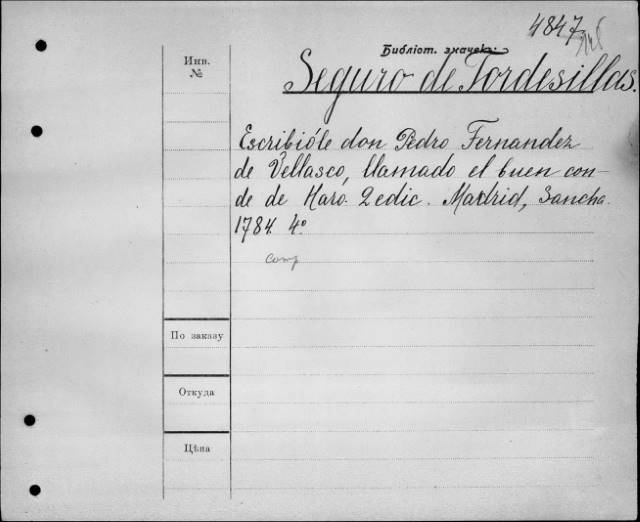 4847
Библіот. значек:
Инв.
№
Seguro de Tordesillas.
Escribióle don Pedro Fernandez
de Vellasco, llamado el buen con-
de de Haro. 2 edic. Madrid, Sancha.
1784. 4º
comp
По заказу
Откуда
Цѣна